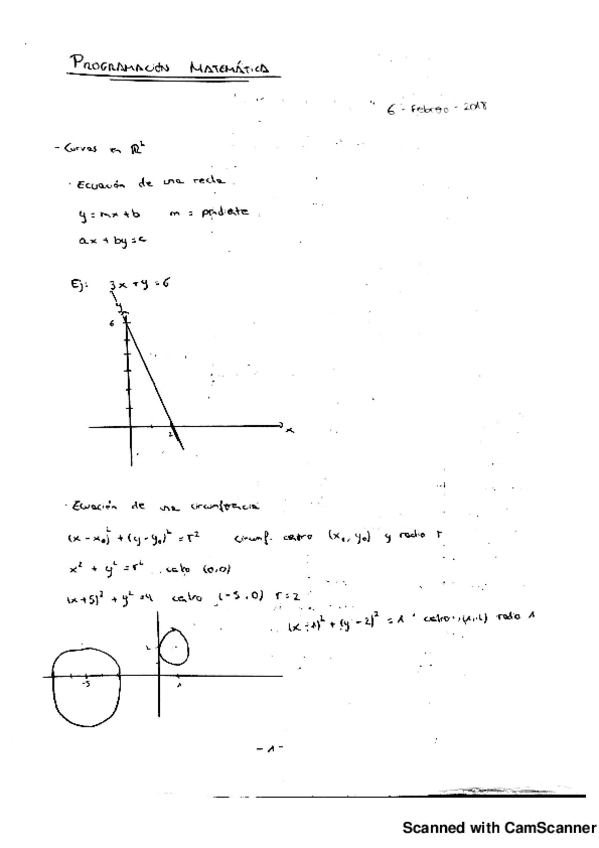 PROGRAMACIÓN MATEMÁTICA
6 - Febrero - 2018
- Curvas en ℝ²
· Ecuación de una recta
y = mx + b m = pendiente
ax + by = c
Ej: 3x + y = 6
y
6
2
x
· Ecuación de una circunferencia
(x - x₀)² + (y - y₀)² = r² circunf. centro (x₀, y₀) y radio r
x² + y² = r² centro (0,0)
(x+5)² + y² = 4 centro (-5,0) r = 2
(x - 1)² + (y - 2)² = 1 centro (1,2) radio 1
2
-5
1
- 1 -
Scanned with CamScanner